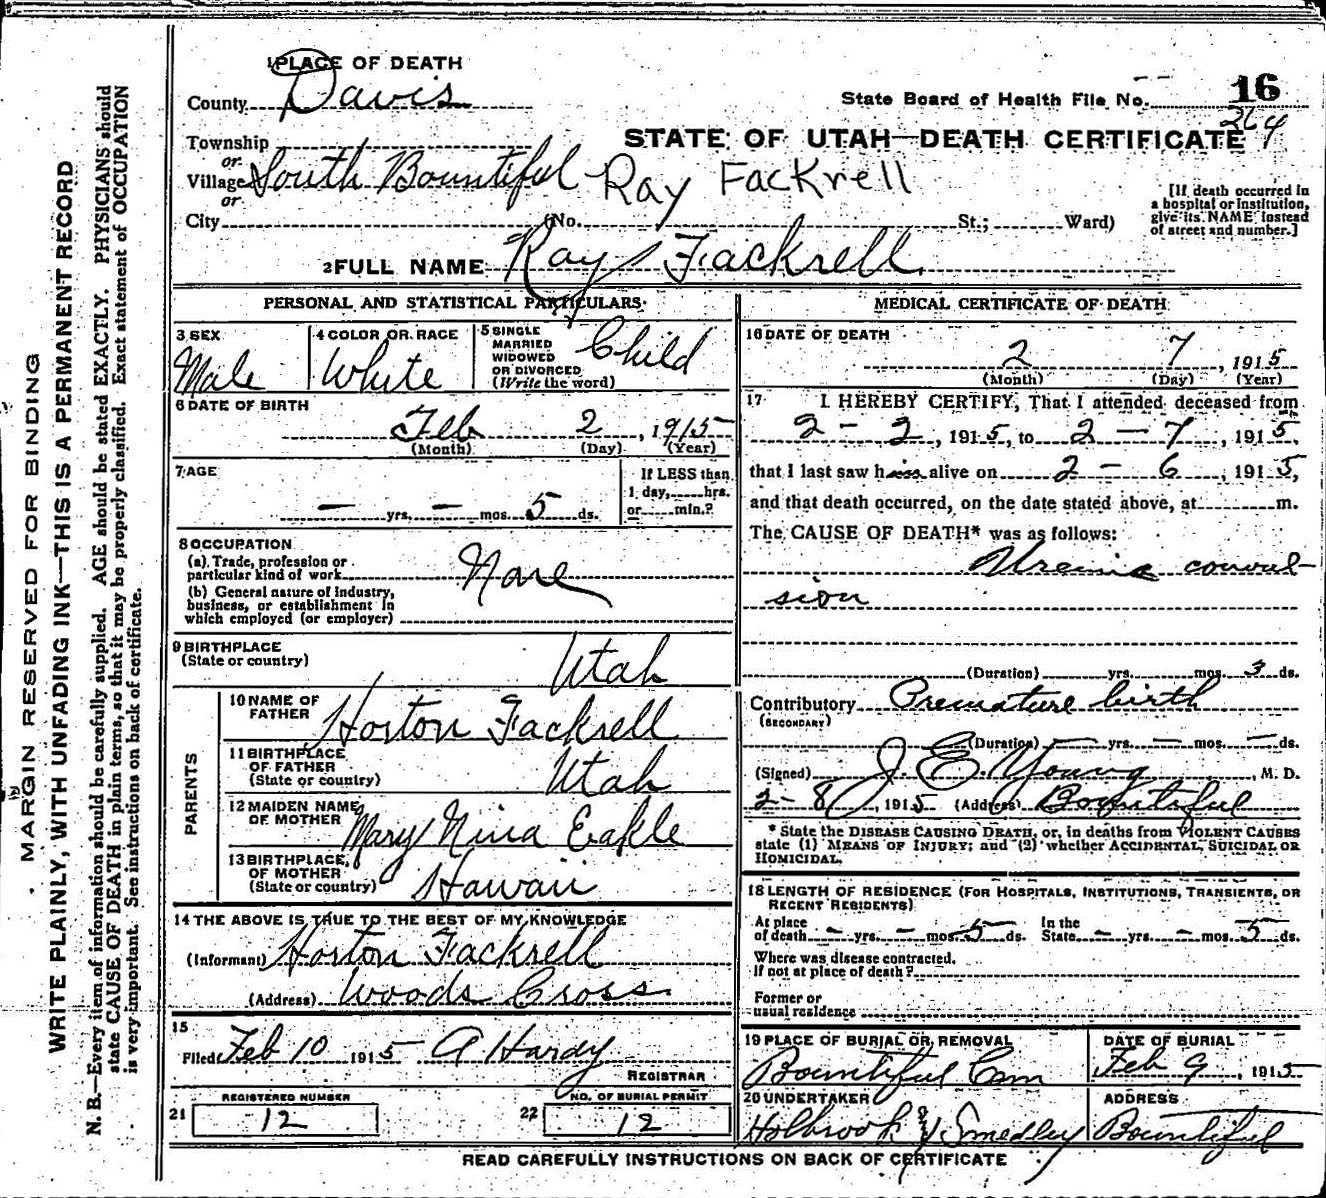 MARGIN RESERVED FOR BINDING
WRITE PLAINLY, WITH UNFADING INK—THIS IS A PERMANENT RECORD
N. B.—Every item of information should be carefully supplied. AGE should be stated EXACTLY. PHYSICIANS should
state CAUSE OF DEATH in plain terms, so that it may be properly classified. Exact statement of OCCUPATION
is very important. See instructions on back of certificate.
1 PLACE OF DEATH
County Davis
State Board of Health File No. 16
264
Township
or
Village South Bountiful
or
City (No. St.; Ward)
STATE OF UTAH—DEATH CERTIFICATE
Ray Fackrell
[If death occurred in
a hospital or institution,
give its NAME instead
of street and number.]
2 FULL NAME Ray Fackrell
PERSONAL AND STATISTICAL PARTICULARS
3 SEX
Male
4 COLOR OR RACE
White
5 SINGLE
MARRIED
WIDOWED
OR DIVORCED
(Write the word)
Child
6 DATE OF BIRTH
Feb 2, 1915
(Month) (Day) (Year)
7 AGE
— yrs. — mos. 5 ds.
If LESS than
1 day, hrs.
or min.?
8 OCCUPATION
(a) Trade, profession or
particular kind of work None
(b) General nature of industry,
business, or establishment in
which employed (or employer)
9 BIRTHPLACE
(State or country) Utah
PARENTS
10 NAME OF
FATHER Horton Fackrell
11 BIRTHPLACE
OF FATHER
(State or country) Utah
12 MAIDEN NAME
OF MOTHER Mary Nina Eakle
13 BIRTHPLACE
OF MOTHER
(State or country) Hawaii
14 THE ABOVE IS TRUE TO THE BEST OF MY KNOWLEDGE
(Informant) Horton Fackrell
(Address) Woods Cross
15
Filed Feb 10 1915 A Hardy
REGISTRAR
21 REGISTERED NUMBER
12
22 NO. OF BURIAL PERMIT
12
MEDICAL CERTIFICATE OF DEATH
16 DATE OF DEATH
2 7, 1915
(Month) (Day) (Year)
17 I HEREBY CERTIFY, That I attended deceased from
2 - 2, 1915, to 2 - 7, 1915,
that I last saw him alive on 2 - 6, 1915,
and that death occurred, on the date stated above, at m.
The CAUSE OF DEATH* was as follows:
Uremic convul-
sion
(Duration) yrs. mos. 3 ds.
Contributory Premature birth
(SECONDARY)
(Duration) — yrs. — mos. — ds.
(Signed) J. E. Young, M. D.
2-8, 1915 (Address) Bountiful
* State the DISEASE CAUSING DEATH, or, in deaths from VIOLENT CAUSES
state (1) MEANS OF INJURY; and (2) whether ACCIDENTAL, SUICIDAL OR
HOMICIDAL.
18 LENGTH OF RESIDENCE (FOR HOSPITALS, INSTITUTIONS, TRANSIENTS, OR
RECENT RESIDENTS)
At place
of death — yrs. — mos. 5 ds.
In the
State — yrs. — mos. 5 ds.
Where was disease contracted,
if not at place of death?
Former or
usual residence
19 PLACE OF BURIAL OR REMOVAL
Bountiful Cem
DATE OF BURIAL
Feb 9, 1915
20 UNDERTAKER
Holbrook & Smedley
ADDRESS
Bountiful
READ CAREFULLY INSTRUCTIONS ON BACK OF CERTIFICATE